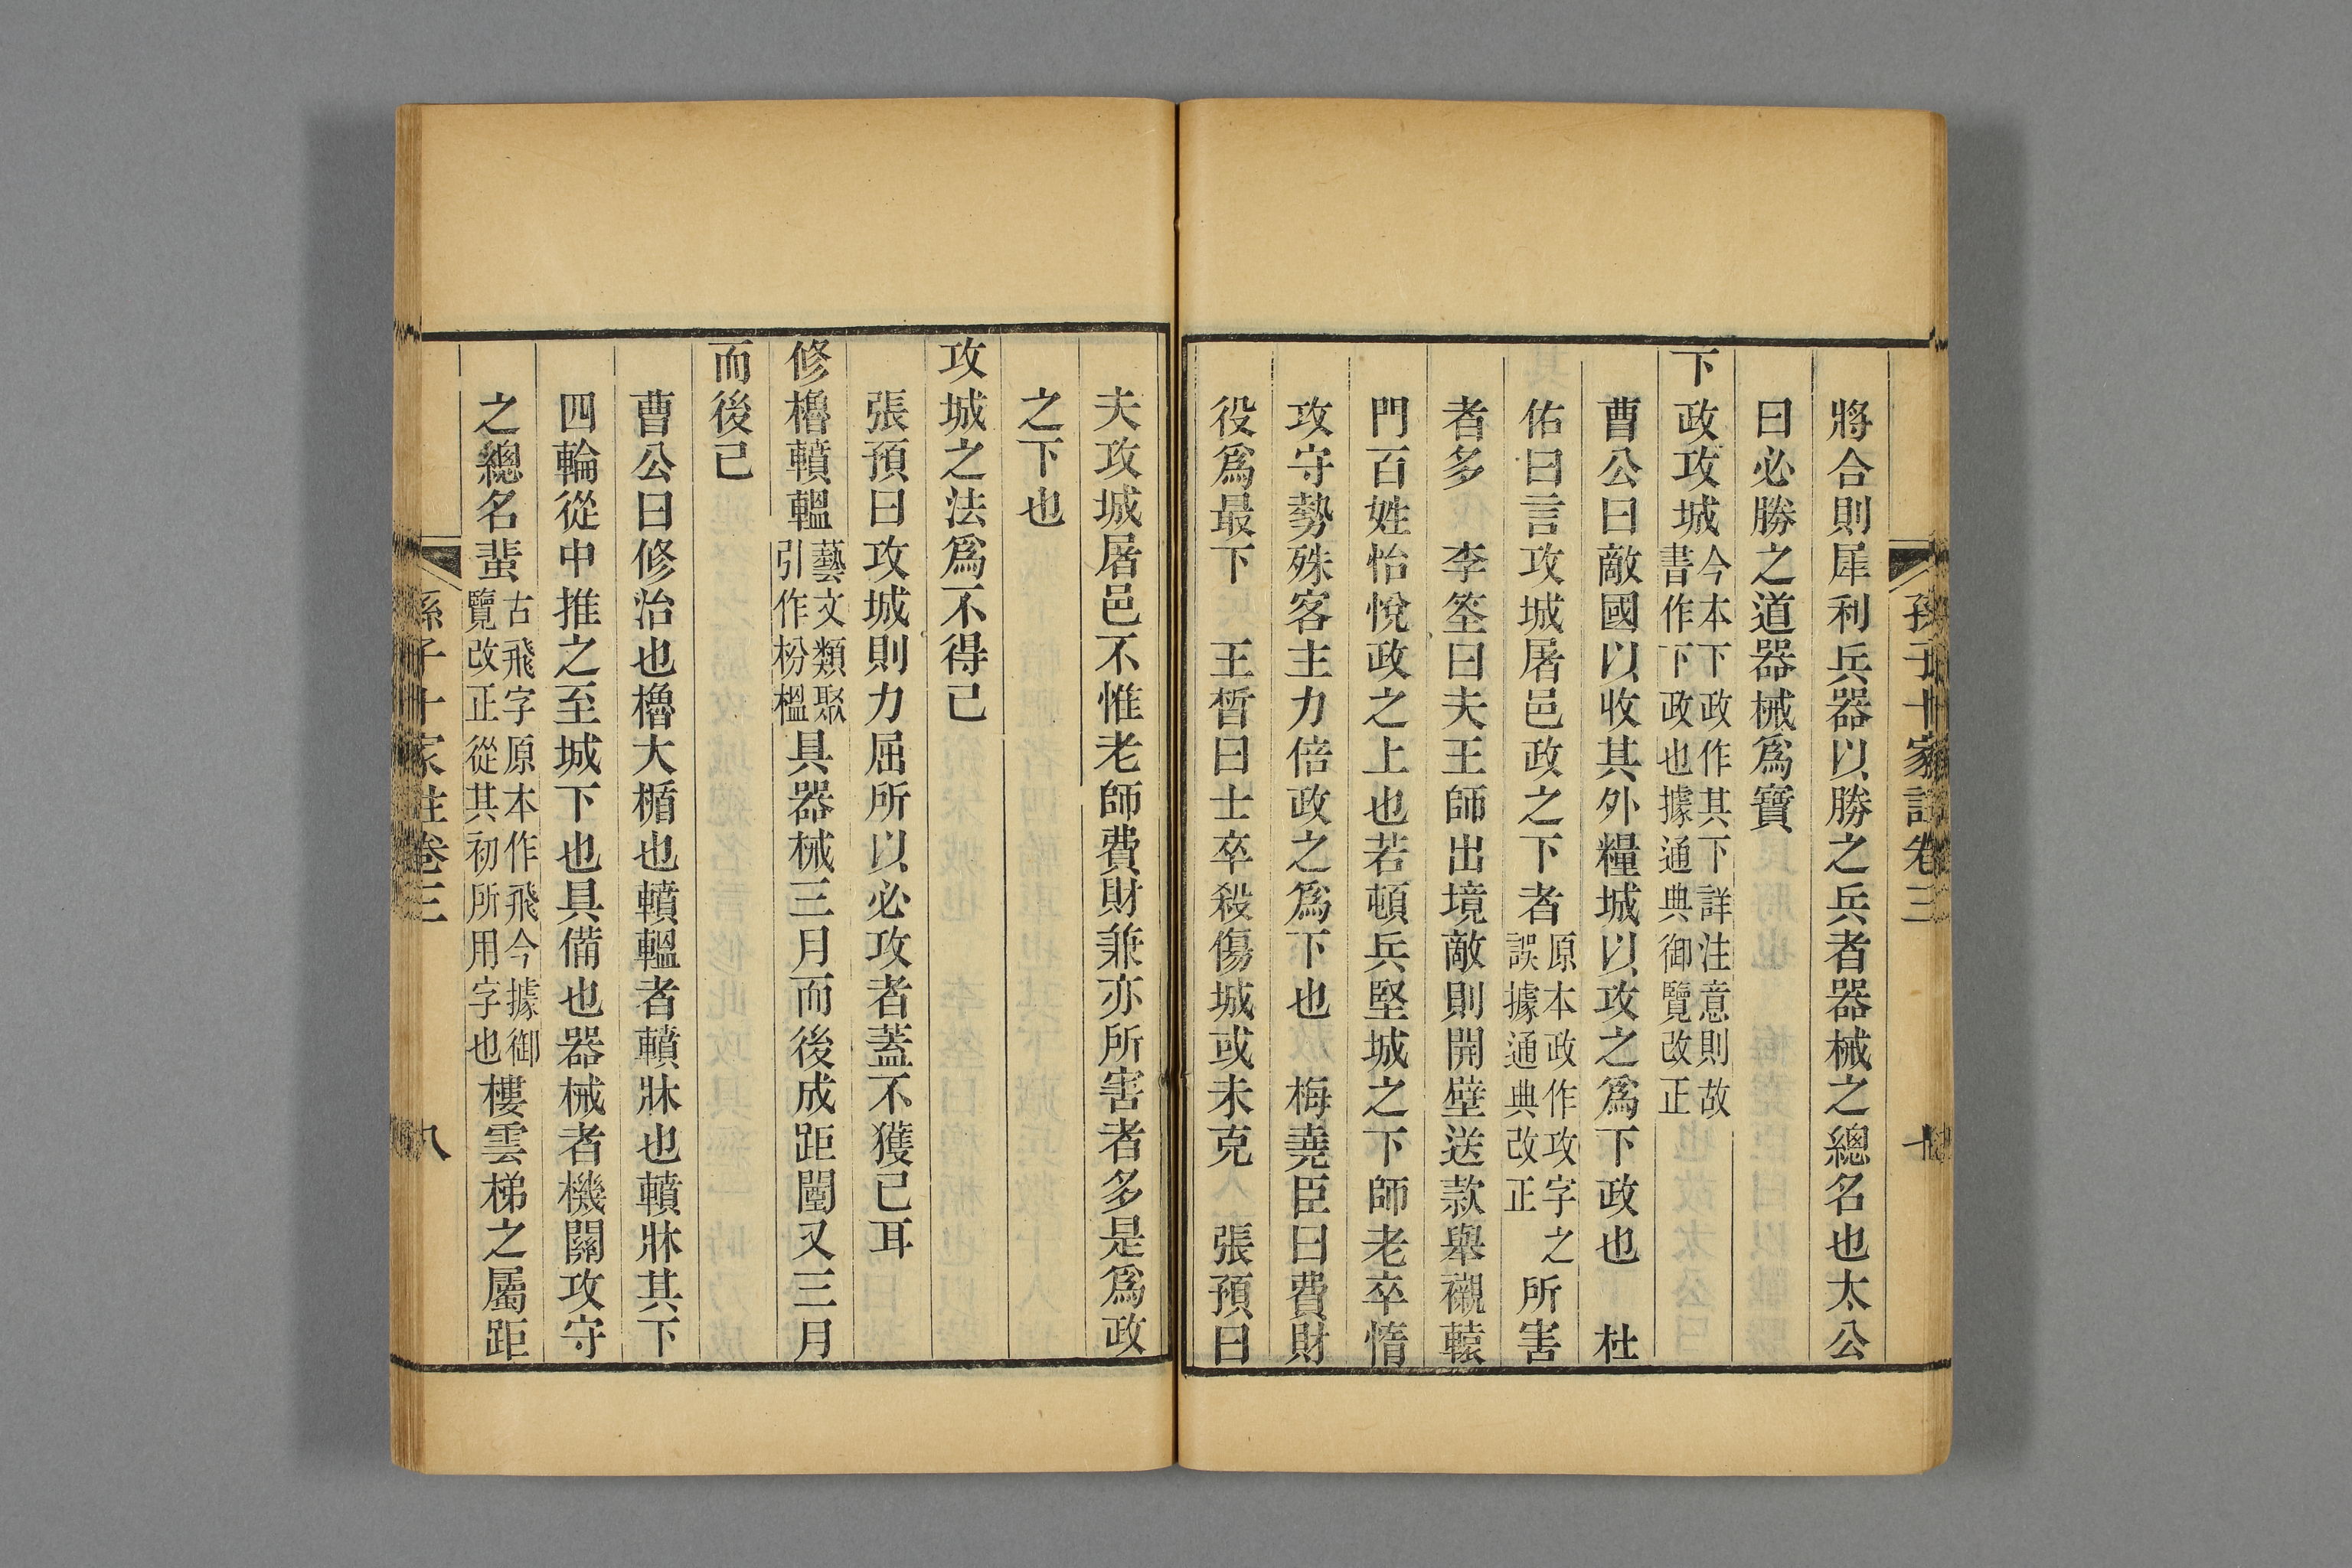 孫子十家註卷三
十
將合則犀利兵器以勝之兵者器械之總名也太公
曰必勝之道器械爲寶
下政攻城今本下政作其下詳注意則故書作下政也據通典御覽改正
曹公曰敵國以收其外糧城以攻之爲下政也 杜
佑曰言攻城屠邑政之下者原本政作攻字之誤據通典改正所害
者多 李筌曰夫王師出境敵則開壁送款舉櫬轅
門百姓怡悅政之上也若頓兵堅城之下師老卒惰
攻守勢殊客主力倍政之爲下也 梅堯臣曰費財
役爲最下 王晳曰士卒殺傷城或未克 張預曰
夫攻城屠邑不惟老師費財兼亦所害者多是爲政
之下也
攻城之法爲不得已
張預曰攻城則力屈所以必攻者蓋不獲已耳
修櫓轒轀藝文類聚引作枌榲具器械三月而後成距闉又三月
而後已
曹公曰修治也櫓大楯也轒轀者轒牀也轒牀其下
四輪從中推之至城下也具備也器械者機關攻守
之總名蜚古飛字原本作飛今據御覽改正從其初所用字也樓雲梯之屬距
孫子十家註卷三
八